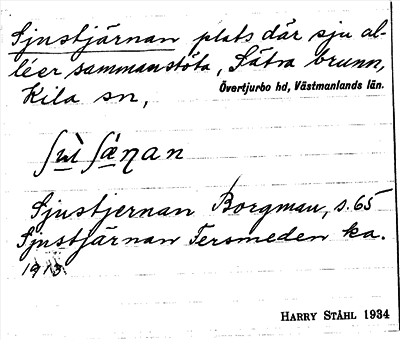 Sjustjärnan plats där sju al-
léer sammanstöta, Sätra brunn,
Kila sn, Övertjurbo hd, Västmanlands län.
Sjustjernan Borgman, s. 65
Sjustjärnan Tersmeden ka.
1913.
HARRY STÅHL 1934